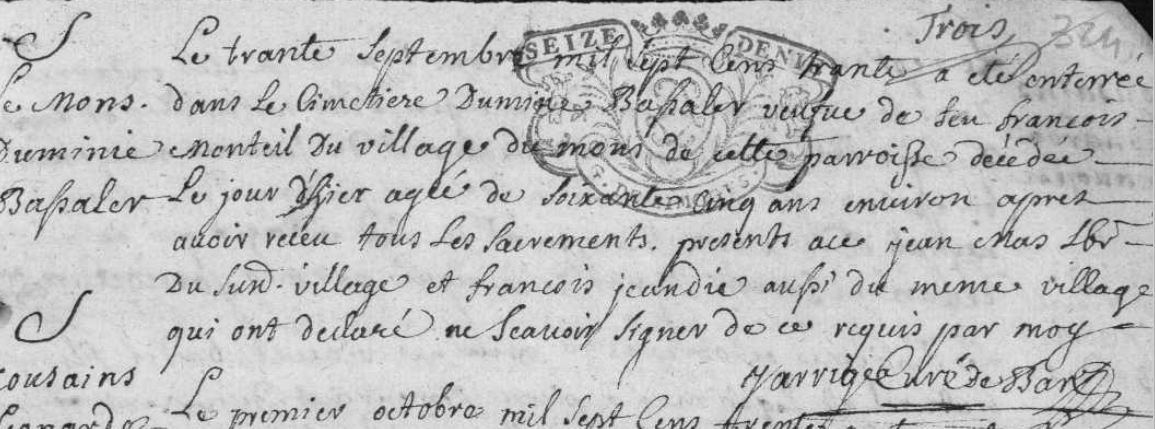 Trois
S
Le trante Septembre mil Sept Cens trante a eté enterrée
Le Mons. dans Le Cimetiere Duminie Bassaler veufue de feu francois
Duminie Monteil Du village du mons de cette parroisse décédée
Bassaler Le jour d'hier agée de soixante Cinq ans environ apres
auoir receu tous Les Sacrements. presents ace jean Mas Lbr
Du Susd. village et francois jeandie aussi du meme village
S
qui ont declaré ne Scauoir Signer de ce requis par moy
Jarrige Curé de Bar
cousains
Leonarde Le premier octobre mil Sept Cens trente
SEIZE DENIERS
G. DE LIMOGES